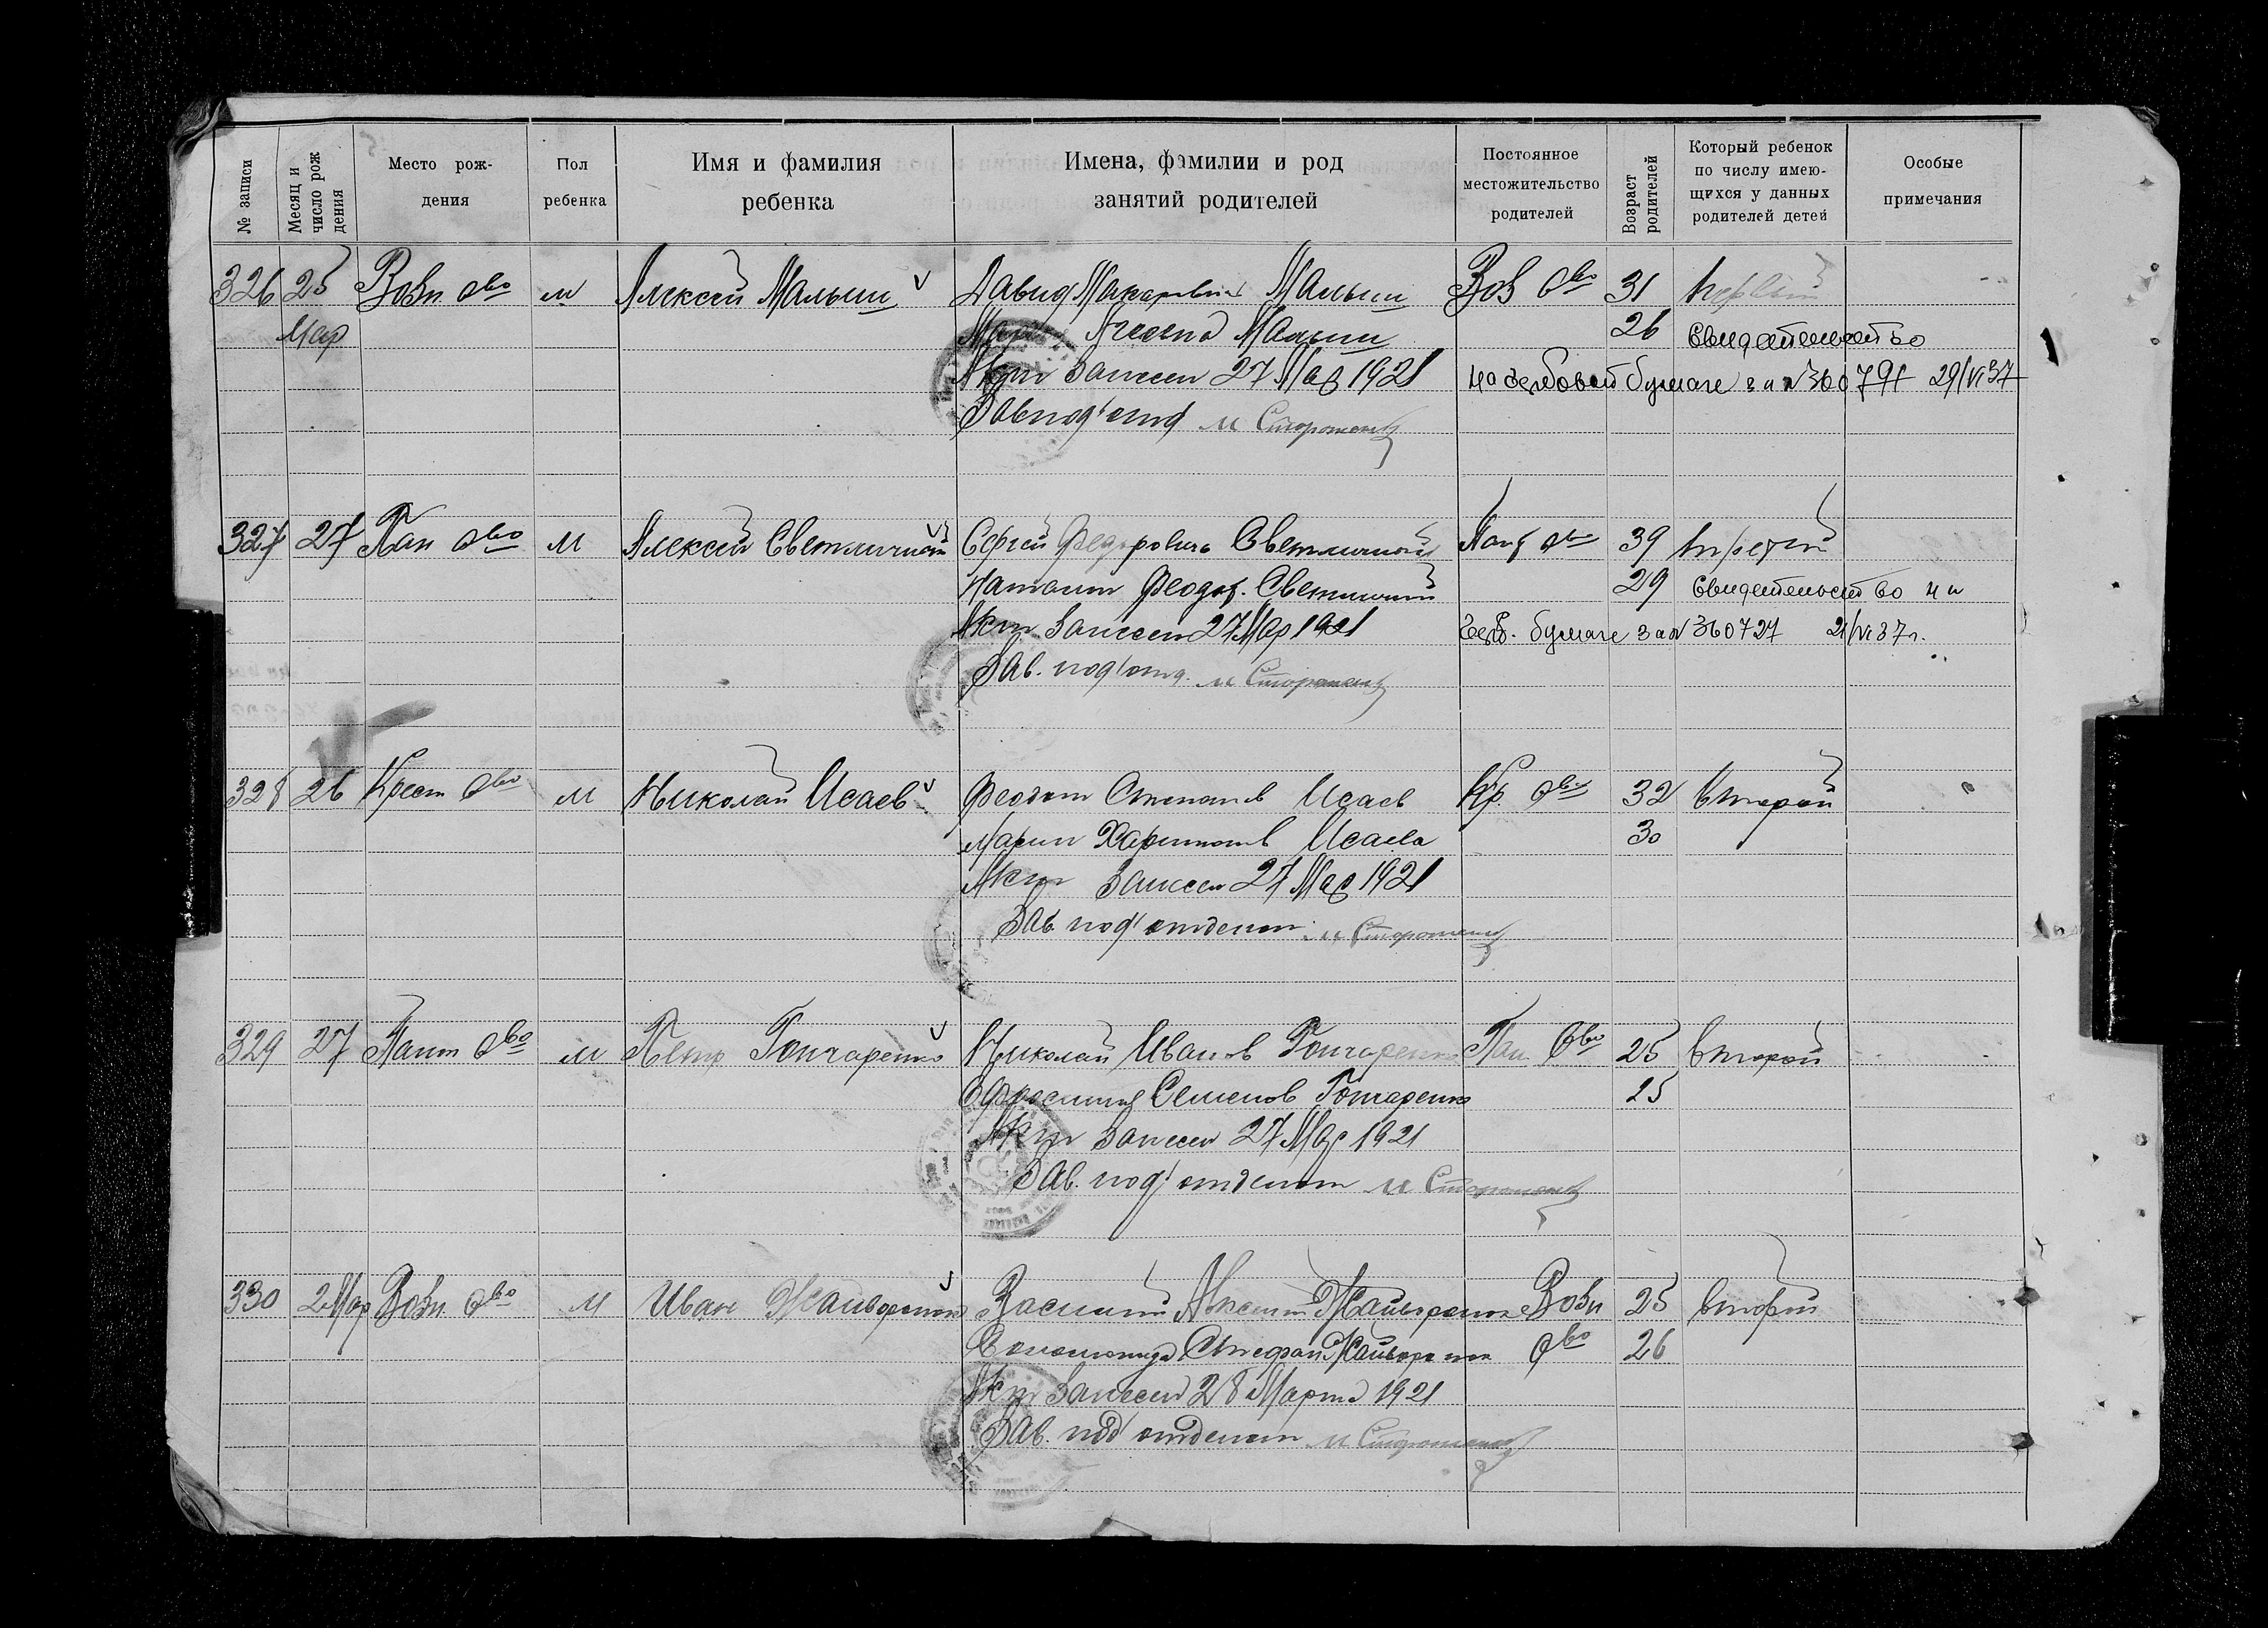 № записи
Месяц и число рождения
Место рождения
Пол ребенка
Имя и фамилия ребенка
Имена, фамилии и род занятий родителей
Постоянное местожительство родителей
Возраст родителей
Который ребенок по числу имеющихся у данных родителей детей
Особые примечания
326 25 Возн. Ово м Алексей Малыш Давид Макарович Малыш Воз Ово 31 первый
Мар Малыш 26 Свидетельство
Акт записан 27 Мар 1921 на гербовой бумаге за № 360791 29/VI 37
Зав под'отд М Сторожен
327 27 Пан Ово м Алексей Светличный Сергей Федорович Светличный Пант Ово 39 третий
Наталия Феодор. Светличный 29 Свидетельство на
Акт записан 27 Мар 1921 Герб. бумаге за № 360727 21/VI 37 г.
Зав. под'отд. М Сторожен
328 26 Крест Ово м Николай Исаев Феодот Степанов Исаев Кр. Ово 32 второй
Мария Харитонов Исаева 30
Акт записан 27 Мар 1921
Зав под'отделом М Сторожен
329 27 Пант Ово м Петр Гончаренко Николай Иванов Гончаренко Пан Ово 25 второй
Ефросиния Семенов Гончаренко 25
Акт записан 27 Мар 1921
Зав. под'отделом М Сторожен
330 2 Мар Возн. Ово м Иван Жайворонок Василий Жайворонок Возн 25 второй
Стефан Жайворонок Ово 26
Акт записан 28 Марта 1921
Зав. под отделом М Сторожен